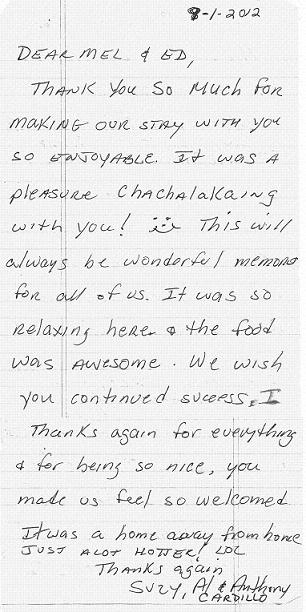 8-1-2012
DEAR MEL & ED,
THANK YOU SO MUCH FOR
MAKING OUR STAY WITH YOU
SO ENJOYABLE. IT WAS A
pleasure Chachalakaing
with you! This will
always be wonderful memors
for all of us. It was so
relaxing here & the food
was awesome. We wish
you continued success.
Thanks again for everything
& for being so nice, you
made us feel so welcomed
It was a home away from home
JUST ALOT HOTTER! LOL
Thanks again
SUZY, Al & Anthony
CARDILLO